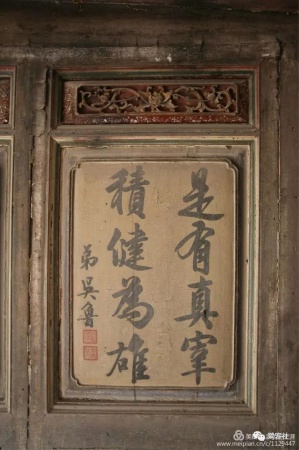 是有真宰
積健為雄
弟吳魯
www.meipian.cn/c/1129447